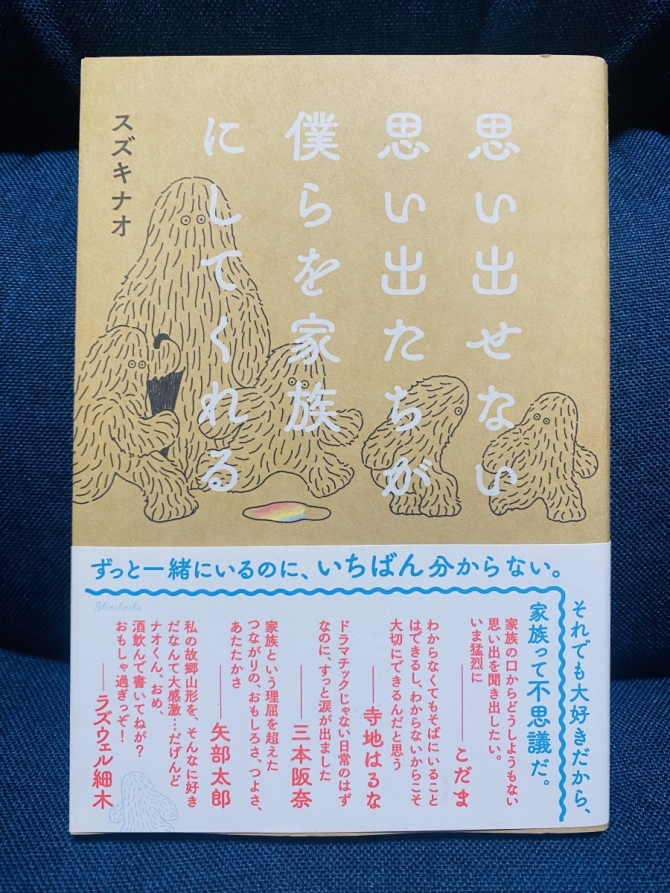 思い出せない
思い出たちが
僕らを家族
にしてくれる
スズキナオ
ずっと一緒にいるのに、いちばん分からない。
それでも大好きだから、
家族って不思議だ。
家族の口からどうしようもない
思い出を聞き出したい。
いま猛烈に
——こだま
わからなくてもそばにいること
はできるし、わからないからこそ
大切にできるんだと思う
——寺地はるな
ドラマチックじゃない日常のはず
なのに、すっと涙が出ました
——三本阪奈
家族という理屈を超えた
つながりの、おもしろさ、つよさ、
あたたかさ
——矢部太郎
私の故郷山形を、そんなに好き
だなんて大感激…だげんど
ナオくん、おめ、
酒飲んで書いてねが?
おもしゃ過ぎっぞ!
——ラズウェル細木
Shinchosha